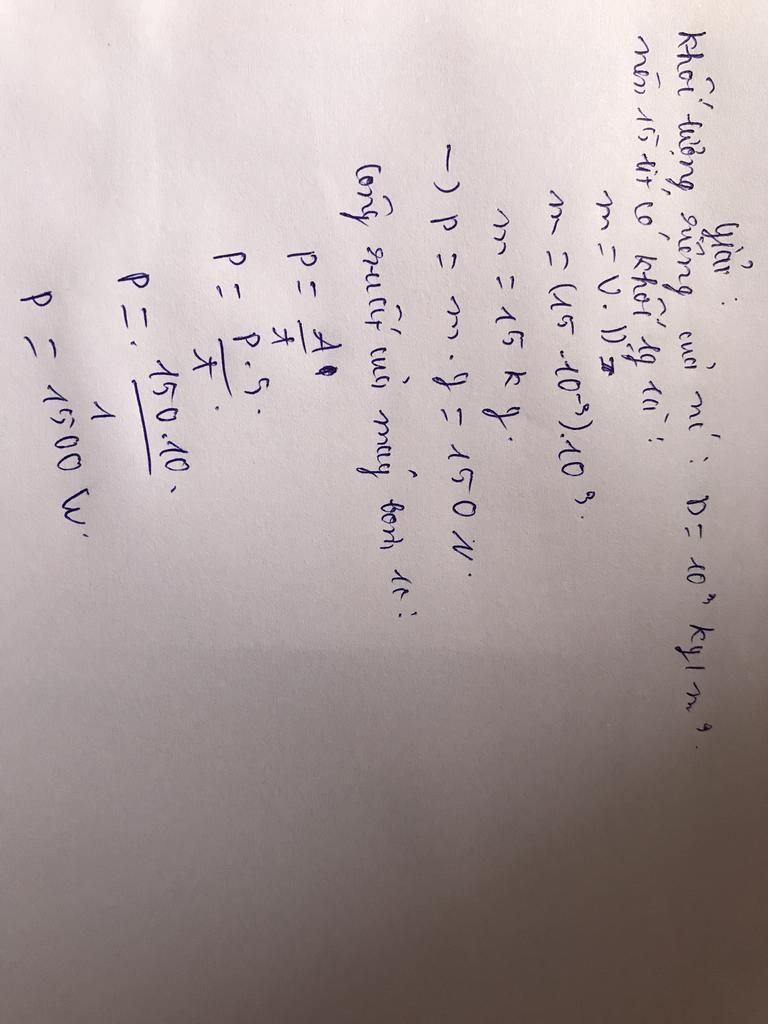 Giải:
Khối lượng riêng của nó: D = 10³ kg/m³.
nên 15 lít có khối lg là:
m = V.D
m = (15.10⁻³).10³.
m = 15 kg.
→ P = m.g = 150 N.
Công suất của máy bơm là:
P = A/t
P = P.S/t.
P = 150.10/1.
P = 1500 W.